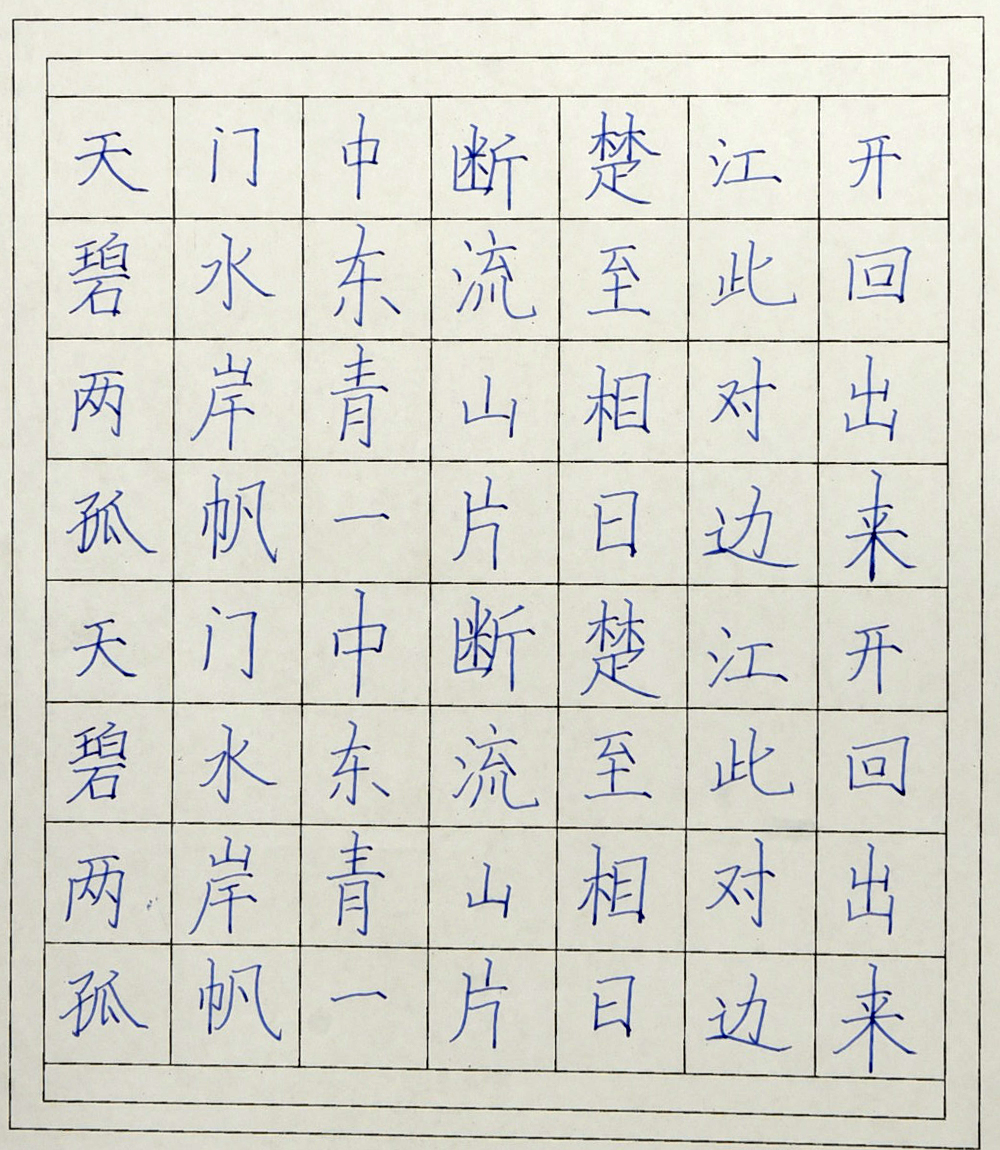 天门中断楚江开
碧水东流至此回
两岸青山相对出
孤帆一片日边来
天门中断楚江开
碧水东流至此回
两岸青山相对出
孤帆一片日边来